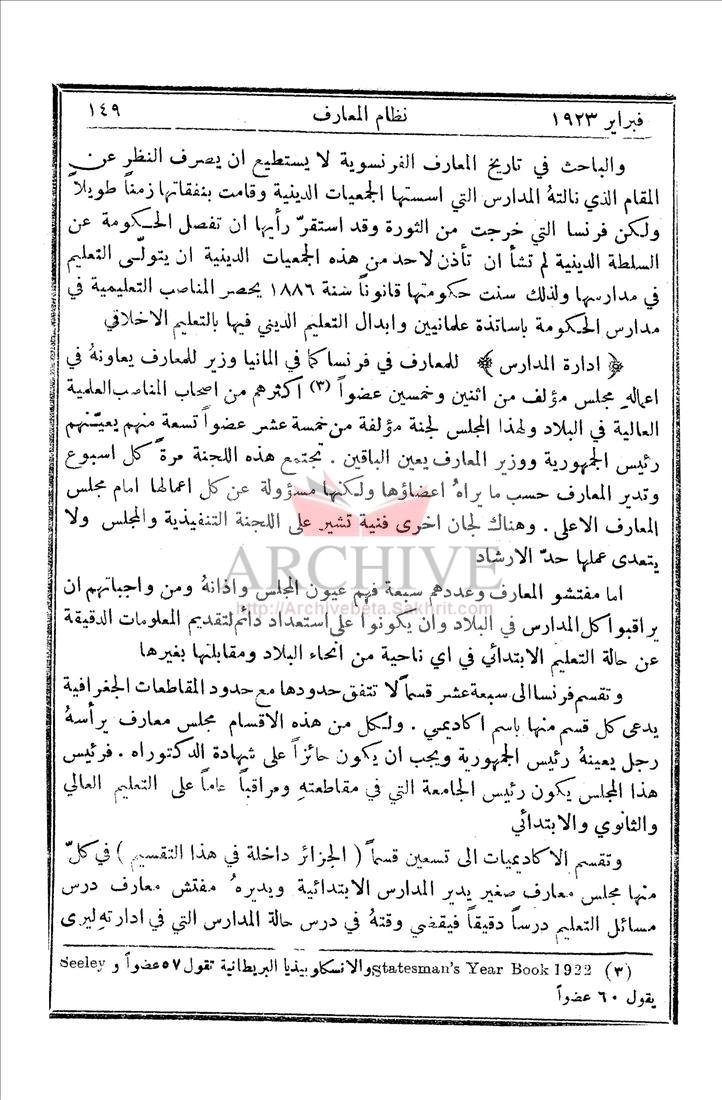 فبراير ١٩٢٣ نظام المعارف ١٤٩
والباحث في تاريخ المعارف الفرنسوية لا يستطيع ان يصرف النظر عن
المقام الذي نالتهُ المدارس التي اسستها الجمعيات الدينية وقامت بنفقاتها زمناً طويلاً
ولكن فرنسا التي خرجت من الثورة وقد استقرّ رأيها ان تفصل الحكومة عن
السلطة الدينية لم تشأ ان تأذن لاحد من هذه الجمعيات الدينية ان يتولّى التعليم
في مدارسها ولذلك سنت حكومتها قانوناً سنة ١٨٨٦ يحصر المناصب التعليمية في
مدارس الحكومة باساتذة علمانيين وابدال التعليم الديني فيها بالتعليم الاخلاقي
﴿ ادارة المدارس ﴾ للمعارف في فرنسا كما في المانيا وزير للمعارف يعاونهُ في
اعماله مجلس مؤلف من اثنين وخمسين عضواً (٣) اكثرهم من اصحاب المناصب العلمية
العالية في البلاد ولهذا المجلس لجنة مؤلفة من خمسة عشر عضواً تسعة منهم يعيّنهم
رئيس الجمهورية ووزير المعارف يعين الباقين . تجتمع هذه اللجنة مرةً كل اسبوع
وتدير المعارف حسب ما يراهُ اعضاؤها ولكنها مسؤولة عن كل اعمالها امام مجلس
المعارف الاعلى . وهناك لجان اخرى فنية تشير على اللجنة التنفيذية والمجلس ولا
يتعدى عملها حدّ الارشاد
ARCHIVE
اما مفتشو المعارف وعددهم سبعة فهم عيون المجلس واذانهُ ومن واجباتهم ان
http://Archivebeta.Sakhrit.com
يراقبوا كل المدارس في البلاد وان يكونوا على استعداد دائم لتقديم المعلومات الدقيقة
عن حالة التعليم الابتدائي في اي ناحية من انحاء البلاد ومقابلتها بغيرها
وتقسم فرنسا الى سبعة عشر قسماً لا تتفق حدودها مع حدود المقاطعات الجغرافية
يدعى كل قسم منها باسم اكاديمي . ولكل من هذه الاقسام مجلس معارف يرأسهُ
رجل يعينهُ رئيس الجمهورية ويجب ان يكون حائزاً على شهادة الدكتوراه . فرئيس
هذا المجلس يكون رئيس الجامعة التي في مقاطعته ومراقباً عاماً على التعليم العالي
والثانوي والابتدائي
وتقسم الاكاديميات الى تسعين قسماً ( الجزائر داخلة في هذا التقسيم ) في كلّ
منها مجلس معارف صغير يدير المدارس الابتدائية ويديرهُ مفتش معارف درس
مسائل التعليم درساً دقيقاً فيقضي وقتهُ في درس حالة المدارس التي في ادارته ليرى
(٣) Statesman's Year Book 1922 والانسكلوبيذيا البريطانية تقول ٥٧ عضواً و Seeley
يقول ٦٠ عضواً